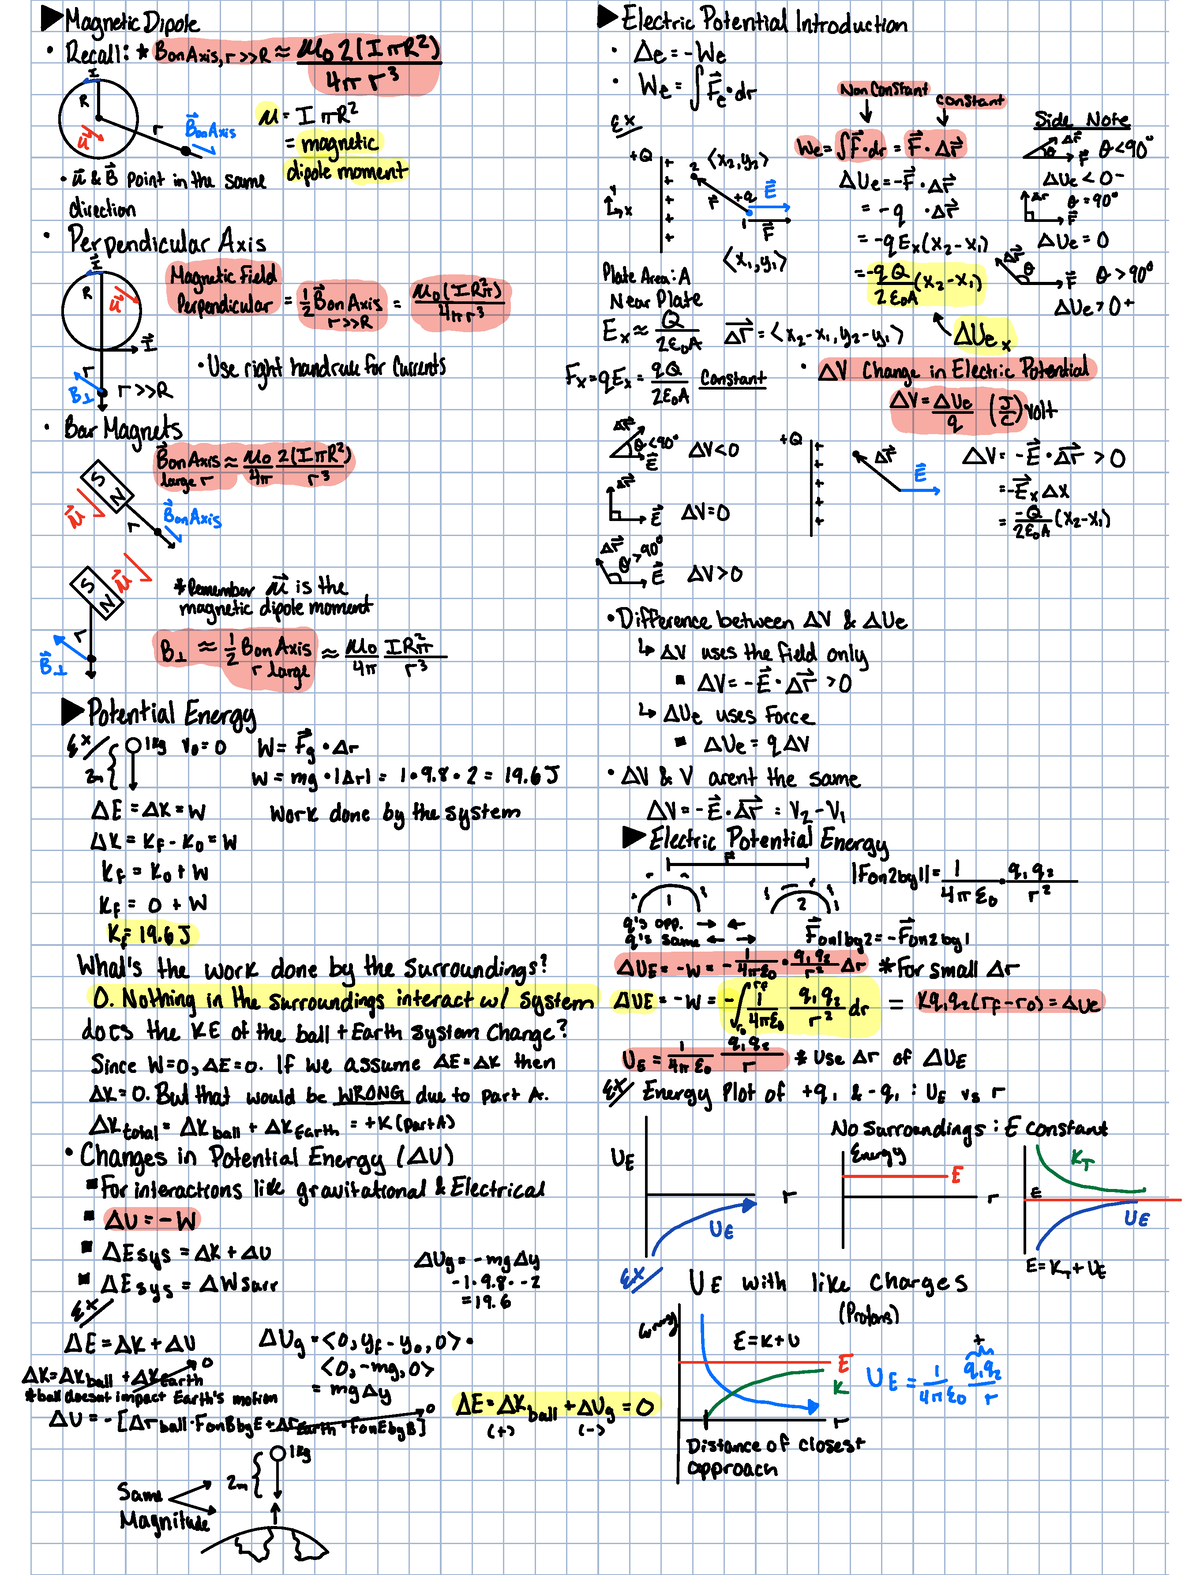 ▶ Magnetic Dipole
• Recall: * B on Axis, r >> R ≈ μ₀ 2(IπR²) / 4π r³
I
R
r
μ⃗
B⃗ on Axis
μ = IπR²
= magnetic
dipole moment
• μ⃗ & B⃗ point in the same
direction
• Perpendicular Axis
I
R
μ⃗
I⃗
r
B⊥
r >> R
Magnetic Field
Perpendicular = ½ B⃗ on Axis r>>R = μ₀(IR²π) / 4πr³
• Use right hand rule for currents
• Bar Magnets
S
N
μ⃗
r
B⃗ on Axis
B⃗ on Axis large r ≈ μ₀/4π 2(IπR²)/r³
S
N
μ⃗
r
B⃗⊥
* Remember μ⃗ is the
magnetic dipole moment
B⊥ ≈ ½ B on Axis r large ≈ μ₀/4π IR²π/r³
▶ Potential Energy
Ex/
1kg v₀ = 0
2m
W = F⃗g • Δr
W = mg • |Δr| = 1 • 9.8 • 2 = 19.6 J
ΔE = ΔK = W
Work done by the system
ΔK = KF - K₀ = W
KF = K₀ + W
KF = 0 + W
KF = 19.6 J
What's the work done by the surroundings?
0. Nothing in the surroundings interact w/ system
does the KE of the ball + Earth system change?
Since W=0, ΔE=0. If we assume ΔE=ΔK then
ΔK=0. But that would be WRONG due to part A.
ΔK total = ΔK ball + ΔK Earth = +K (part A)
• Changes in Potential Energy (ΔU)
▪ For interactions like gravitational & Electrical
▪ ΔU = -W
▪ ΔEsys = ΔK + ΔU
▪ ΔEsys = ΔWsurr
ΔUg = -mgΔy
-1 • 9.8 • -2
= 19.6
Ex/
ΔE = ΔK + ΔU
ΔUg = <0, yF - y₀, 0> •
<0, -mg, 0>
= mgΔy
ΔK = ΔK ball + ΔK Earth 0
* ball doesnt impact Earth's motion
ΔU = -[Δr ball • F on B by E + Δr Earth • F on E by B] 0
ΔE = ΔK ball + ΔUg = 0
(+) (-)
1kg
2m
Same
Magnitude
▶ Electric Potential Introduction
• Δe = -We
• We = ∫F⃗e • dr
Ex/
+Q
2 <x₂, y₂>
r⃗
+q
E⃗
1
F⃗
<x₁, y₁>
y
x
Non Constant
constant
We = ∫F⃗•dr = F⃗ • Δr⃗
ΔUe = -F⃗ • Δr⃗
= -q • Δr⃗
= -q Ex (x₂ - x₁)
= -qQ / 2ε₀A (x₂ - x₁)
ΔUe x
Side Note
Δr⃗
θ
F⃗
θ < 90°
ΔUe < 0 -
Δr
F⃗
θ = 90°
ΔUe = 0
Δr⃗
θ
F⃗
θ > 90°
ΔUe > 0 +
Plate Area: A
Near Plate
Ex ≈ Q / 2ε₀A
Δr⃗ = <x₂ - x₁, y₂ - y₁>
Fx = qEx = qQ / 2ε₀A Constant
• ΔV Change in Electric Potential
ΔV = ΔUe / q (J/C) volt
Δr⃗
θ < 90°
E⃗
ΔV < 0
Δr⃗
E⃗
ΔV = 0
Δr⃗
θ > 90°
E⃗
ΔV > 0
+Q
Δr⃗
E⃗
ΔV = -E⃗ • Δr⃗ > 0
= -E⃗x Δx
= -Q / 2ε₀A (x₂ - x₁)
• Difference between ΔV & ΔUe
↳ ΔV uses the field only
▪ ΔV = -E⃗ • Δr⃗ > 0
↳ ΔUe uses Force
▪ ΔUe = qΔV
• ΔV & V arent the same
ΔV = -E⃗ • Δr⃗ = V₂ - V₁
▶ Electric Potential Energy
r
1
2
q's opp. → ←
q's same ← →
|F on 2 by 1| = 1/4πε₀ • q₁q₂/r²
F⃗ on 1 by 2 = -F⃗ on 2 by 1
ΔUE = -W = -1/4πε₀ • q₁q₂/r² Δr * For small Δr
ΔUE = -W = -∫ r₀ rF 1/4πε₀ q₁q₂/r² dr = Kq₁q₂(rF - r₀) = ΔUe
UE = 1/4πε₀ q₁q₂/r * Use Δr of ΔUE
Ex/ Energy Plot of +q₁ & -q₁ : UE vs r
UE
r
UE
No Surroundings : E constant
Energy
E
r
KT
E
UE
E = KT + UE
Ex/ UE with like charges
(Protons)
Energy
E = K + U
E
K
r
UE = 1/4πε₀ q₁q₂/r
+
Distance of closest
approach